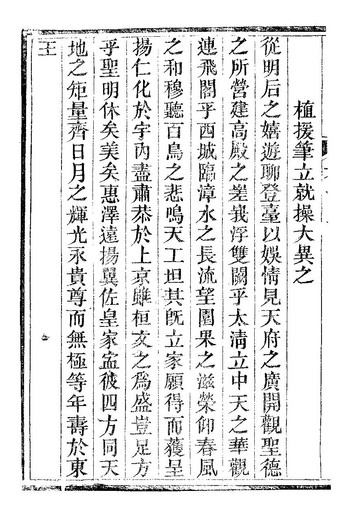 植援筆立就操大異之
從明后之嬉遊聊登臺以娛情見天府之廣開觀聖德
之所營建高殿之差我浮雙闕乎太淸立中天之華觀
連飛閣乎西城臨漳水之長流望園果之滋榮仰春風
之和穆聽百鳥之悲鳴天工坦其旣立家願得而獲呈
揚仁化於宇內盡肅恭於上京雖桓文之爲盛豈足方
乎聖明休矣美矣惠澤遠揚翼佐皇家寍彼四方同天
地之矩量齊日月之輝光永貴尊而無極等年壽於東
王